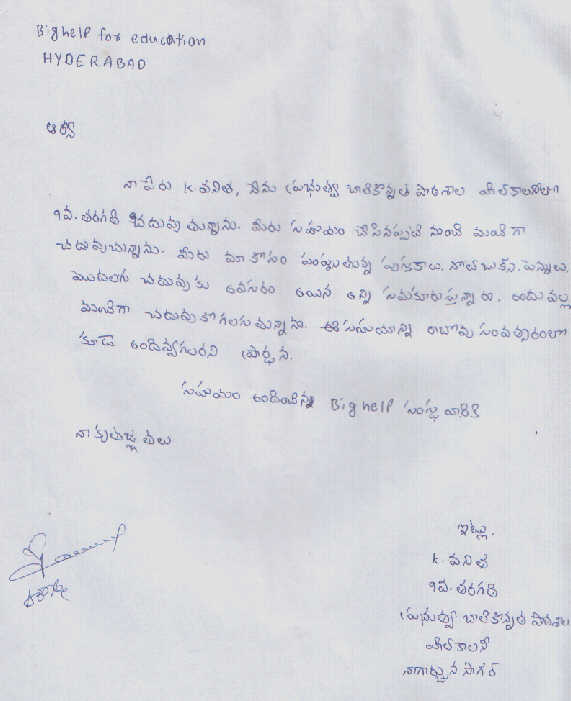 Bighelp for education
HYDERABAD
ఆర్యా
నా పేరు K వనిత, నేను ప్రభుత్వ బాలికోన్నత పాఠశాల హిల్ కాలనీలో
9వ. తరగతి చదువుచున్నాను. మీరు సహాయం చేసినప్పటి నుంచి మంచిగా
చదువుచున్నాను. మీరు మా కోసం పంపుతున్న పుస్తకాలు, నోట్ బుక్స్, పెన్నులు,
మొదలగు చదువుకు అవసరం అయిన అన్ని సమకూరుస్తున్నారు. అందువల్ల
మంచిగా చదువుకోగలుగుతున్నాను. ఈ సహాయాన్ని రాబోవు సంవత్సరంలో
కూడా అందివ్వగలరని ప్రార్థన.
సహాయం అందించిన Big help సంస్థ వారికి
నా కృతజ్ఞతలు
ఇట్లు.
K. వనిత
9వ. తరగతి
ప్రభుత్వ బాలికోన్నత పాఠశాల
హిల్ కాలనీ
నాగార్జున సాగర్